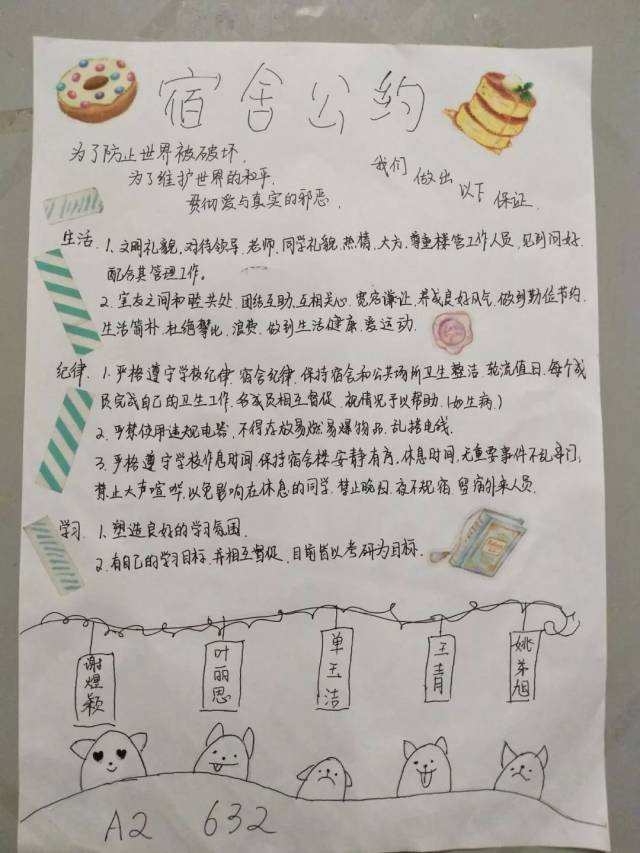 宿舍公约
为了防止世界被破坏，
为了维护世界的和平，
贯彻爱与真实的邪恶，
我们做出以下保证。
生活 1. 文明礼貌，对待领导、老师、同学礼貌、热情、大方、尊重楼管工作人员，见到问好，
配合其管理工作。
2. 室友之间和睦共处，团结互助，互相关心，宽容谦让，养成良好风气，做到勤俭节约，
生活简朴，杜绝攀比、浪费，做到生活健康，爱运动。
纪律 1. 严格遵守学校纪律，宿舍纪律，保持宿舍和公共场所卫生整洁 轮流值日，每个成
员完成自己的卫生工作，各成员相互督促，视情况予以帮助。(如生病)
2. 严禁使用违规电器，不得存放易燃易爆物品，乱搭电线。
3. 严格遵守学校作息时间，保持宿舍楼安静有序，休息时间，无重要事件不乱串门，
禁止大声喧哗，以免影响在休息的同学，禁止晚归，夜不归宿，留宿外来人员。
学习 1. 塑造良好的学习氛围。
2. 有自己的学习目标，并相互督促，目前皆以考研为目标。
谢煜颖
叶丽思
单玉洁
王青
姚弟旭
A2 632